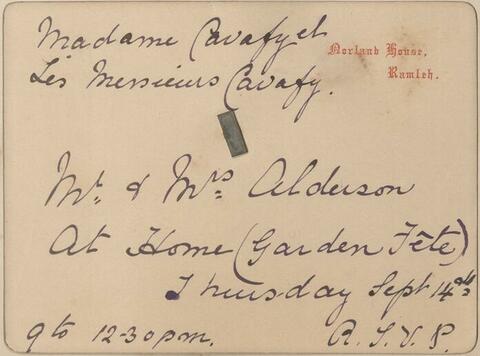 Madame Cavafy et
Les Messieurs Cavafy.
Norland House,
Ramleh.
Mr. & Mrs Alderson
At Home (Garden Fête)
Thursday Sept 14th
9 to 12-30 p.m.
R.S.V.P.